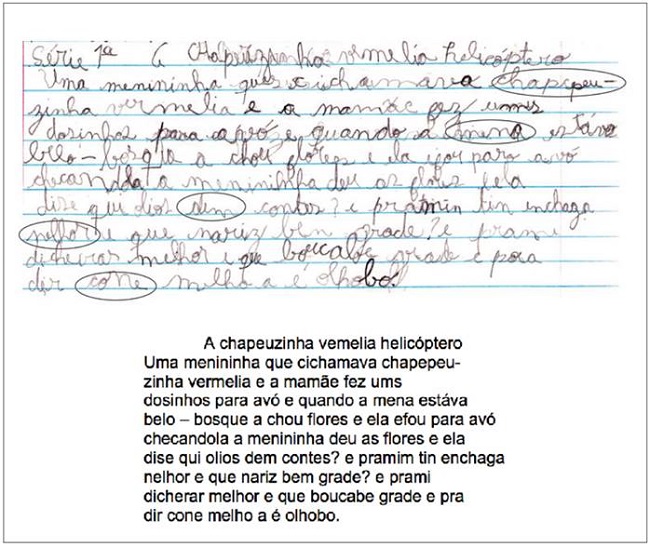 Série 1ª A Chapeuzinha vermelia helicóptero
Uma menininha que cichamava chapepeu-
zinha vermelia e a mamãe fez ums
dosinhos para avó e quando a mena estáva
a chou flores e ela para avó
a menininha deu as flores e ela
dise qui olios dem contes? e pramin tin enchaga
nelhor e que nariz ben grade? e prami
dicheirar melhor e que boucabe grade e para
dir cone melho a é olhobo.
A chapeuzinha vemelia helicóptero
Uma menininha que cichamava chapepeu-
zinha vermelia e a mamãe fez ums
dosinhos para avó e quando a mena estáva
belo – bosque a chou flores e ela efou para avó
checandola a menininha deu as flores e ela
dise qui olios dem contes? e pramim tin enchaga
nelhor e que nariz bem grade? e prami
dicherar melhor e que boucabe grade e pra
dir cone melho a é olhobo.